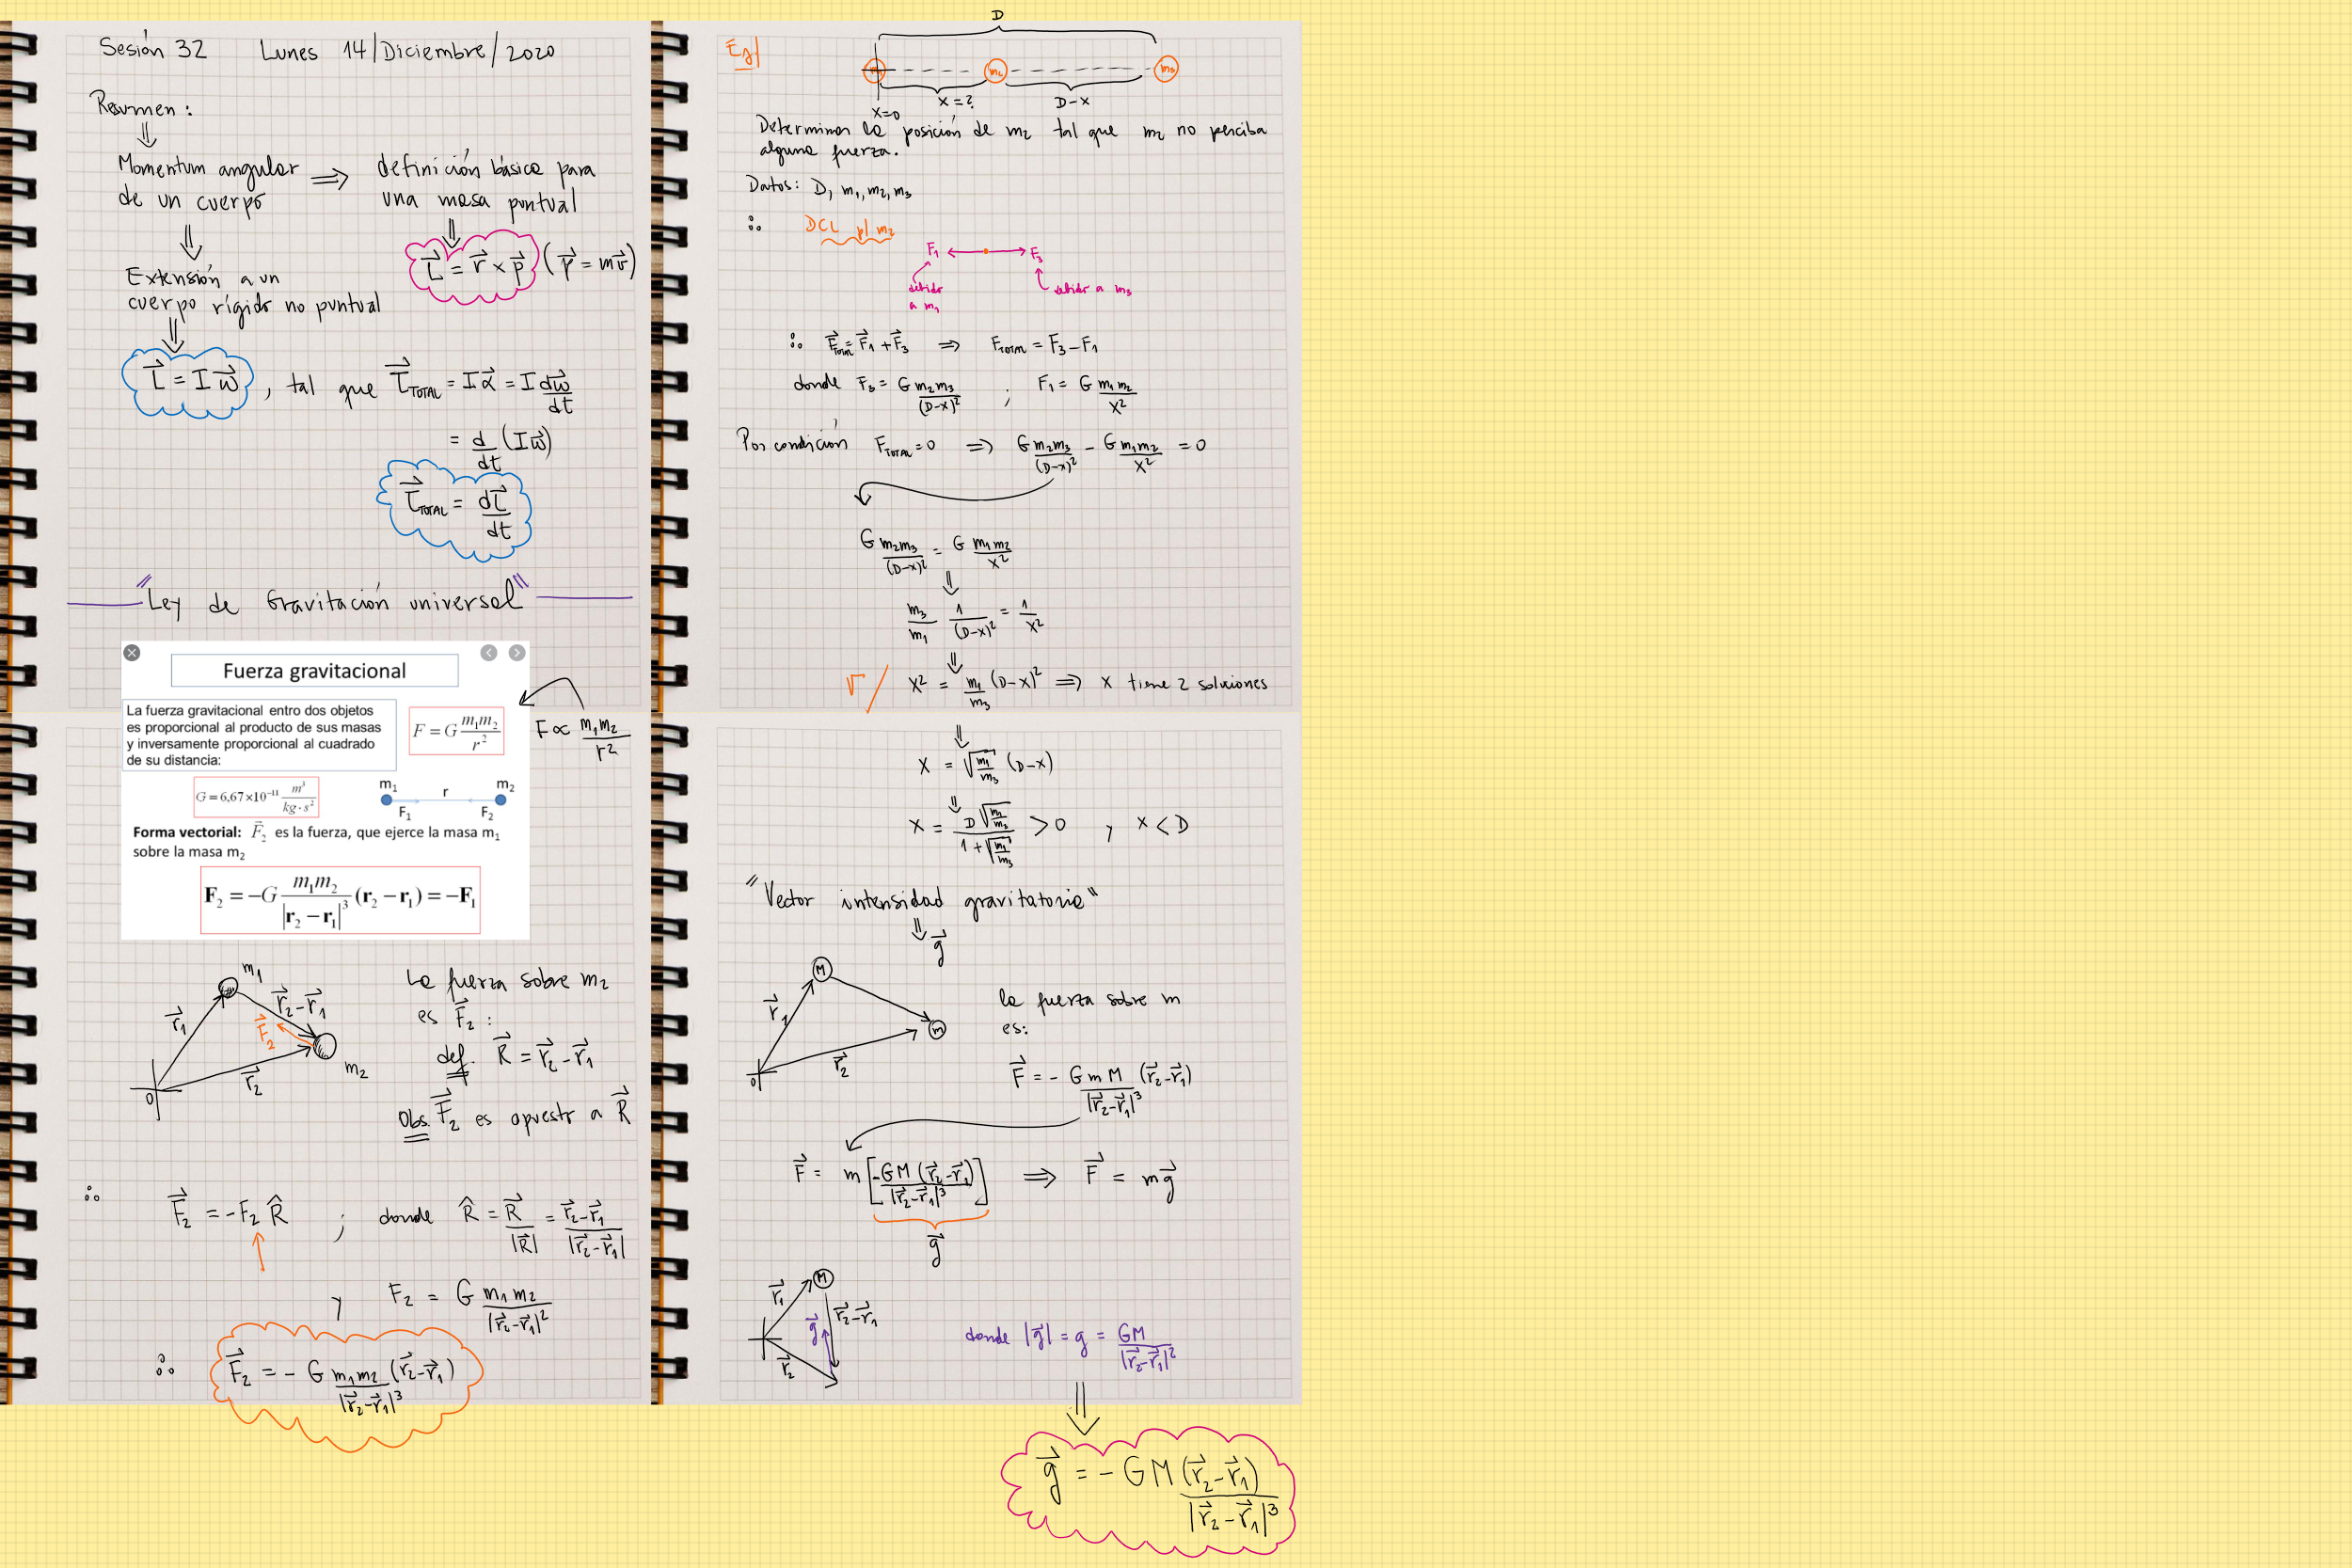 Sesión 32 Lunes 14/Diciembre/2020
Resumen:
⇓
Momentum angular ⇒ definición básica para
de un cuerpo una masa puntual
⇓ ⇓
L⃗ = r⃗ × p⃗ (p⃗ = mv⃗)
Extensión a un
cuerpo rígido no puntual
⇓
L⃗ = I ω⃗ , tal que τ⃗_TOTAL = I α⃗ = I dω⃗/dt
= d/dt (I ω⃗)
τ⃗_TOTAL = dL⃗/dt
"Ley de Gravitación universal"
Fuerza gravitacional
La fuerza gravitacional entre dos objetos
es proporcional al producto de sus masas
y inversamente proporcional al cuadrado
de su distancia:
F = G m₁m₂/r²
F ∝ m₁m₂/r²
G = 6,67×10⁻¹¹ m³/kg·s²
m₁ r m₂
F₁ F₂
Forma vectorial: F⃗₂ es la fuerza, que ejerce la masa m₁
sobre la masa m₂
F₂ = −G m₁m₂/|r₂ − r₁|³ (r₂ − r₁) = −F₁
m₁
r⃗₂-r⃗₁
r⃗₁
F⃗₂
r⃗₂
m₂
0
La fuerza sobre m₂
es F⃗₂ :
def. R⃗ = r⃗₂ - r⃗₁
Obs. F⃗₂ es opuesto a R⃗
∴ F⃗₂ = -F₂ R̂ ; donde R̂ = R⃗/|R⃗| = r⃗₂-r⃗₁/|r⃗₂-r⃗₁|
y F₂ = G m₁m₂/|r⃗₂-r⃗₁|²
∴ F⃗₂ = - G m₁m₂ (r⃗₂-r⃗₁)/|r⃗₂-r⃗₁|³
Ej|
D
m₁ m₂ m₃
x=? D-x
x=0
Determinar la posición de m₂ tal que m₂ no perciba
alguna fuerza.
Datos: D, m₁, m₂, m₃
∴ DCL p/ m₂
F₁ F₃
debido debido a m₃
a m₁
∴ F⃗_TOTAL = F⃗₁ + F⃗₃ ⇒ F_TOTAL = F₃ - F₁
donde F₃ = G m₂m₃/(D-x)² ; F₁ = G m₁m₂/x²
Por condición F_TOTAL = 0 ⇒ G m₂m₃/(D-x)² - G m₁m₂/x² = 0
G m₂m₃/(D-x)² = G m₁m₂/x²
⇓
m₃/m₁ 1/(D-x)² = 1/x²
⇓
√ / x² = m₁/m₃ (D-x)² ⇒ x tiene 2 soluciones
⇓
x = √(m₁/m₃) (D-x)
⇓
x = D√(m₁/m₃)/(1+√(m₁/m₃)) > 0 y x < D
"Vector intensidad gravitatoria"
⇓ g⃗
M
r⃗₁
m
r⃗₂
0
la fuerza sobre m
es:
F⃗ = - G m M (r⃗₂-r⃗₁)/|r⃗₂-r⃗₁|³
F⃗ = m [-GM (r⃗₂-r⃗₁)/|r⃗₂-r⃗₁|³] ⇒ F⃗ = m g⃗
g⃗
M
r⃗₁
r⃗₂-r⃗₁
g⃗
r⃗₂
donde |g⃗| = g = GM/|r⃗₂-r⃗₁|²
⇓
g⃗ = - GM (r⃗₂-r⃗₁)/|r⃗₂-r⃗₁|³